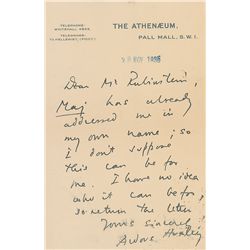 TELEPHONE:
WHITEHALL
TELEGRAMS:
THE ATHENÆUM,
PALL MALL, S.W.1.
NOV 1935
Dear Mr Rubinstein,
Maj has already
addressed me in
my own name; so
I don't suppose
this can be for
me. I have no idea
who it can be for,
so return the letter
Yours sincerely
Aldous Huxley